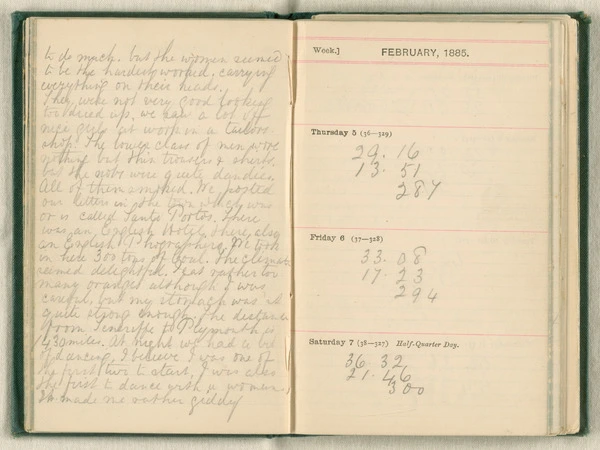 to do much. but the women seemed
to be the hardest worked, carrying
everything on their heads.
They were not very good looking
we saw a lot of
nice girls at work in a tailors
shop. The lower class of men wore
nothing but thin trousers & shirts.
but the nobs were quite dandies.
All of them smoked. We posted
our letters in the town which was
or is called Santa Portos. There
was an English Hotel there, also
an English Photographers. We took
in here 300 tons of coal. The climate
seemed delightful. I eat rather too
many oranges although I was
careful, but my stomach was not
quite strong enough. The distance
from Teneriffe to Plymouth is
1430 miles. At night we had a bit
of dancing, I believe I was one of
the first two to start, I was also
the first to dance with a woman,
It made me rather giddy
Week.] FEBRUARY, 1885.
Thursday 5 (36—329)
29. 16
13. 51
287
Friday 6 (37—328)
33. 08
17. 23
294
Saturday 7 (38—327) Half-Quarter Day.
36. 32
21. 46
300